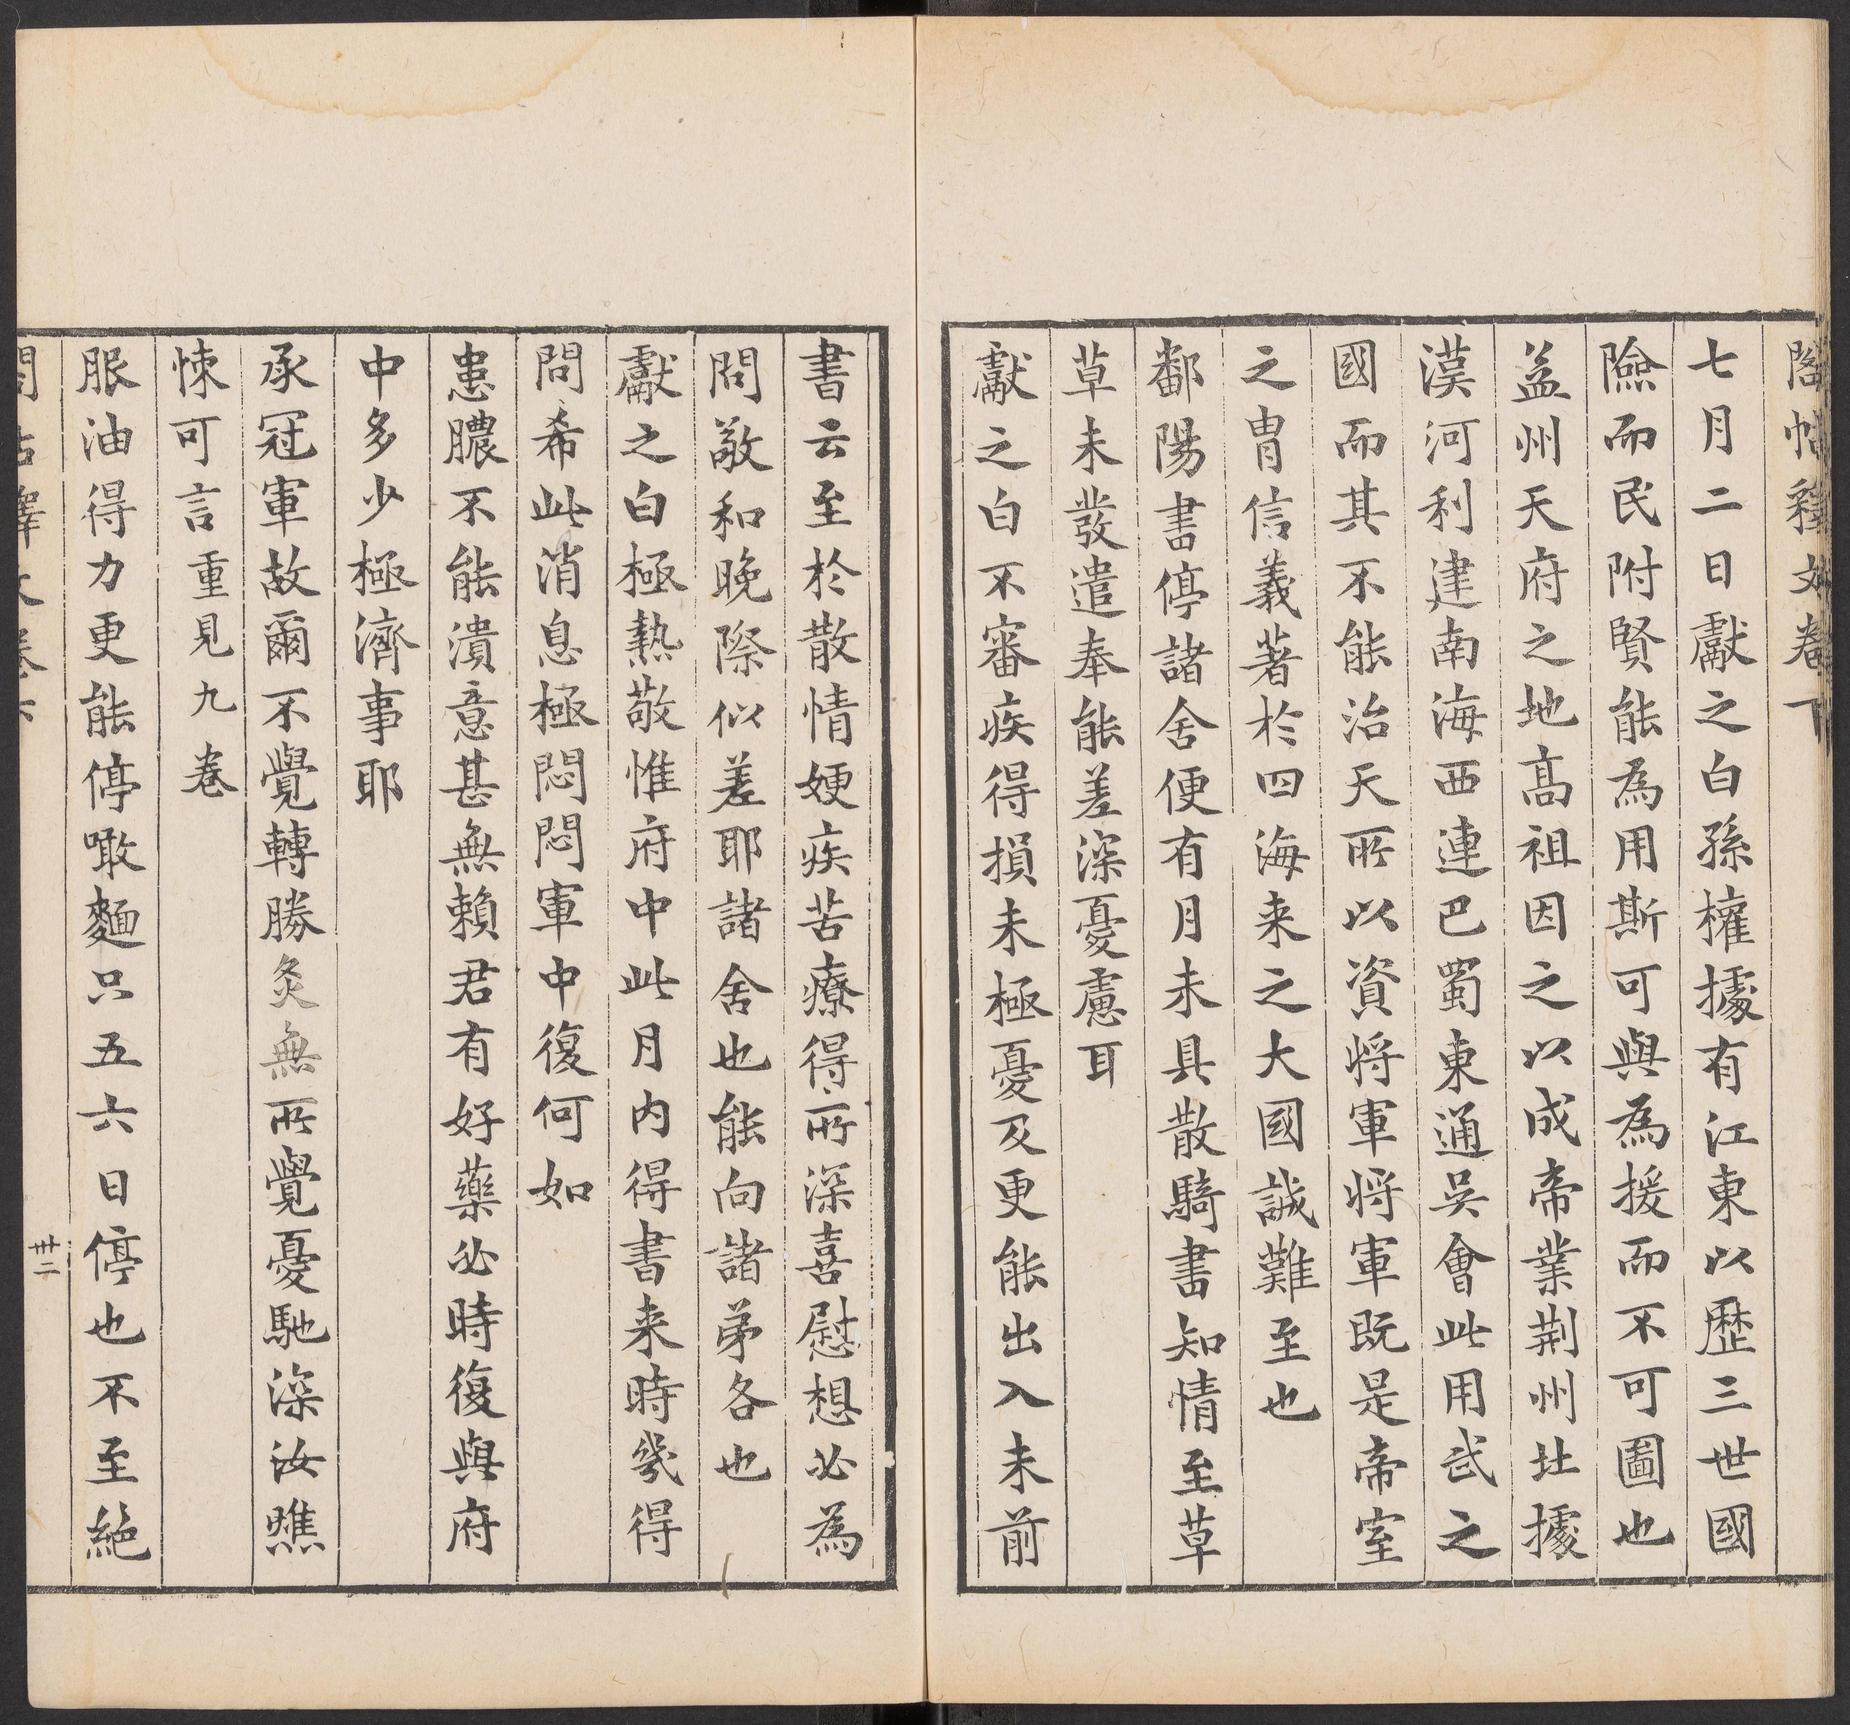 閣帖釋文卷下
七月二日獻之白孫權據有江東以歷三世國
險而民附賢能為用斯可與為援而不可圖也
益州天府之地髙祖因之以成帝業荆州北據
漢河利建南海西連巴蜀東通吳會此用武之
國而其不能治天所以資將軍將軍既是帝室
之胄信義著於四海来之大國誠難至也
鄱陽書停諸舍便有月未具散騎書知情至草
草未發遣奉能差深憂慮耳
獻之白不審疾得損未極憂及更能出入未前
書云至於散情婹疾苦療得所深喜慰想必為
問敬和晚際似差耶諸舍也能向諸弟各也
獻之白極熱敬惟府中此月内得書来時幾得
問希此消息極悶悶軍中復何如
患膿不能潰意甚無賴君有好藥必時復與府
中多少極濟事耶
承冠軍故爾不覺轉勝灸無所覺憂馳深汝燋
悚可言重見九卷
服油得力更能停噉麵只五六日停也不至絕
閣帖釋文卷六
卅二